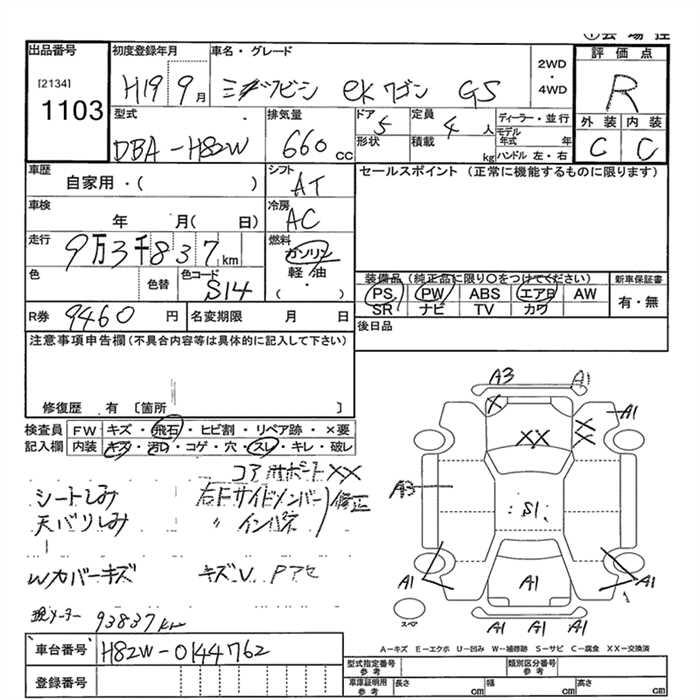 出品番号
[2134]
1103
初度登録年月
H19 9月
車名・グレード
ミツビシ ekワゴン GS
2WD
・
4WD
評価点
R
外装 内装
C C
型式
DBA-H82W
排気量
660 cc
ドア
5
形状
定員
4 人
積載
kg
ディーラー・並行
モデル
年式 年
ハンドル 左・右
車歴
自家用・( )
シフト
AT
セールスポイント (正常に機能するものに限ります)
車検
年 月( 日)
冷房
AC
走行
9万3千837km
燃料
ガソリン
軽油
・
( )
色
色替
色コード
S14
装備品 (純正品に限り○をつけてください)
PS PW ABS エアB AW
SR ナビ TV カワ
新車保証書
有・無
R券 9460 円
名変期限 月 日
後日品
注意事項申告欄(不具合内容等は具体的に記入して下さい)
修復歴 有 〔箇所 〕
検査員
記入欄
FW キズ・飛石・ヒビ割・リペア跡・×要
内装 キズ・汚れ・コゲ・穴・スレ・キレ・破レ
コアサポートXX
シートしみ
天バリしみ
右Fサイドメンバー
〃 インパネ
修正
Wカバーキズ
キズU
現メーター 93837km
A3 A1
X
A1
XX
X
X
A3
S1
A1 A1 A1
A1 A1 A1
スペア
A-キズ E-エクボ U-凹み W-補修跡 S-サビ C-腐食 XX-交換済
車台番号
H82W-0144762
登録番号
型式指定番号
参考
類別区分番号
参考
車庫証明用
参考
長さ cm 幅 cm 高さ cm